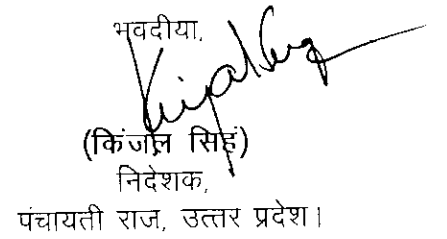 भवदीया,
(किंजल सिहं)
निदेशक,
पंचायती राज, उत्तर प्रदेश।